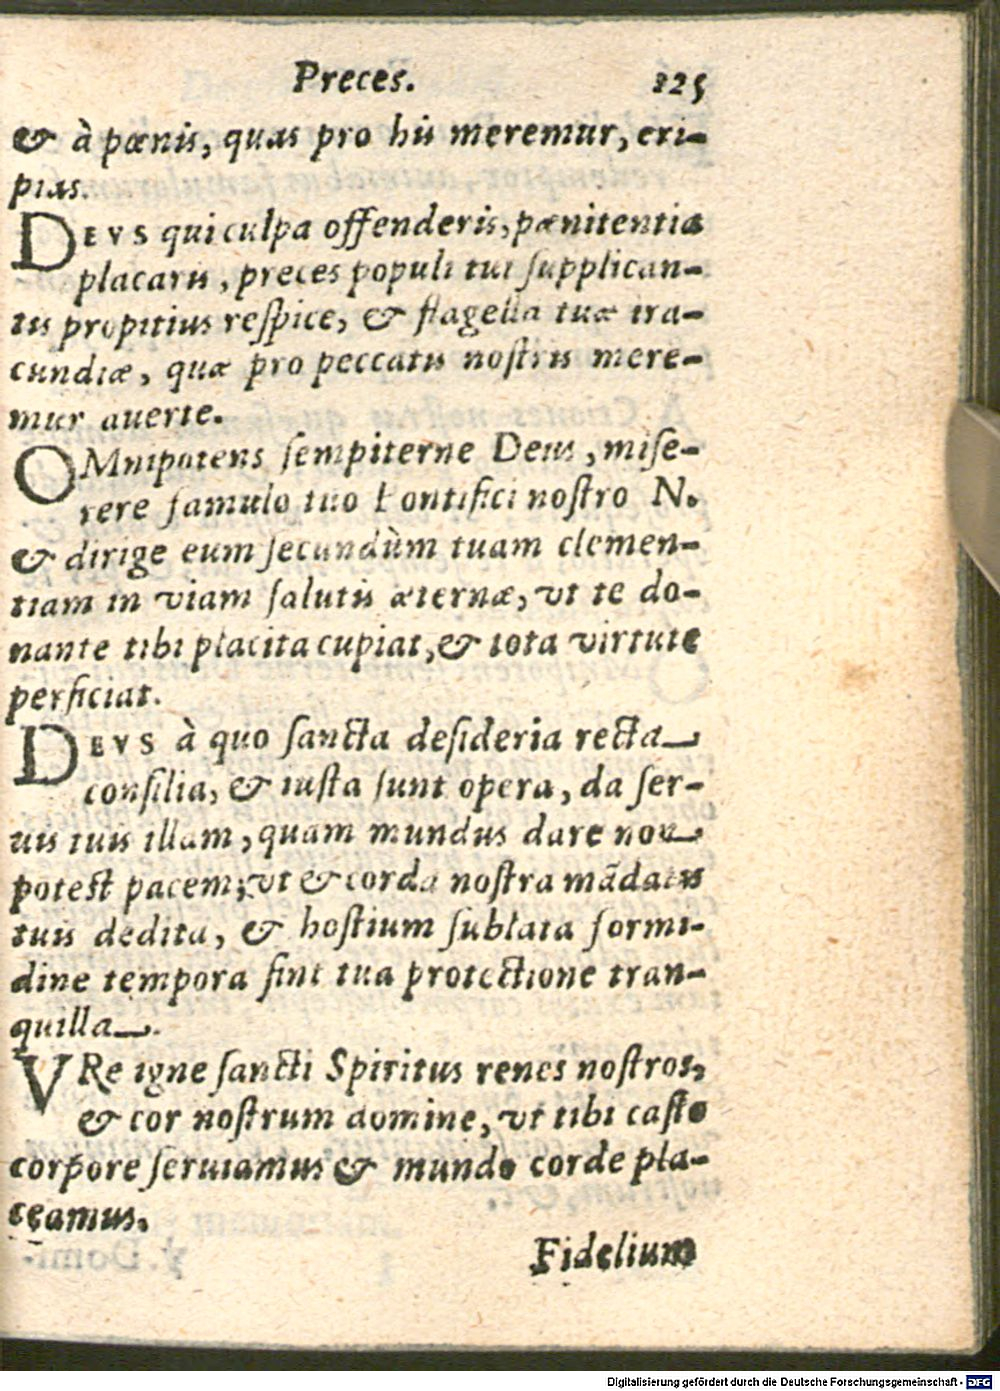 Preces. 125
& à pœnis, quas pro his meremur, eri-
pias.
DEVS qui culpa offenderis, pænitentia
placaris, preces populi tui ſupplican-
tis propitius reſpice, & flagella tuæ ira-
cundiæ, quæ pro peccatis noſtris mere-
mur auerte.
OMnipotens ſempiterne Deus, miſe-
rere famulo tuo Pontifici noſtro N.
& dirige eum ſecundùm tuam clemen-
tiam in viam ſalutis æternæ, vt te do-
nante tibi placita cupiat, & tota virtute
perficiat.
DEVS à quo ſancta deſideria recta
conſilia, & iuſta ſunt opera, da ſer-
uis tuis illam, quam mundus dare non
potest pacem, vt & corda noſtra mādatis
tuis dedita, & hoſtium ſublata formi-
dine tempora ſint tua protectione tran-
quilla.
VRe igne ſancti Spiritus renes noſtros,
& cor noſtrum domine, vt tibi caſto
corpore ſeruiamus & mundo corde pla-
ceamus.
Fidelium
Digitalisierung gefördert durch die Deutsche Forschungsgemeinschaft - DFG